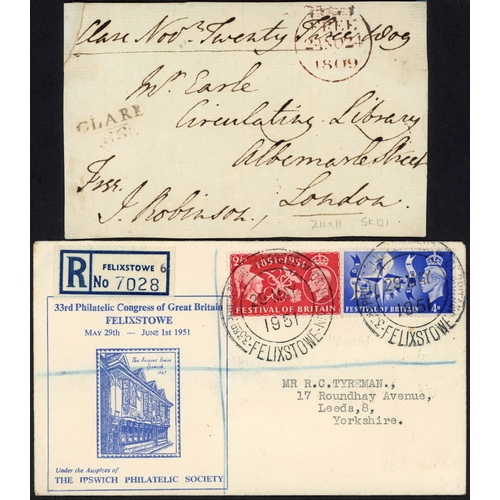 Clare Novr Twenty Three 1809
FREE
24NO24
1809
Mr Earle
CLARE
Circulating Library
Albemarle Street
Free
London
J. Robinson
24 x 11 SK Q1
R
FELIXSTOWE 6
No 7028
33rd Philatelic Congress of Great Britain
FELIXSTOWE
MAY 29th — JUNE 1st 1951
The Ancient House
Ipswich
Under the Auspices of
THE IPSWICH PHILATELIC SOCIETY
2½
1851-1951
FESTIVAL OF BRITAIN
4D
FESTIVAL OF BRITAIN
1951
FELIXSTOWE
29
1951
FELIXSTOWE
MR R.C.TYREMAN.,
17 Roundhay Avenue,
Leeds,8,
Yorkshire.